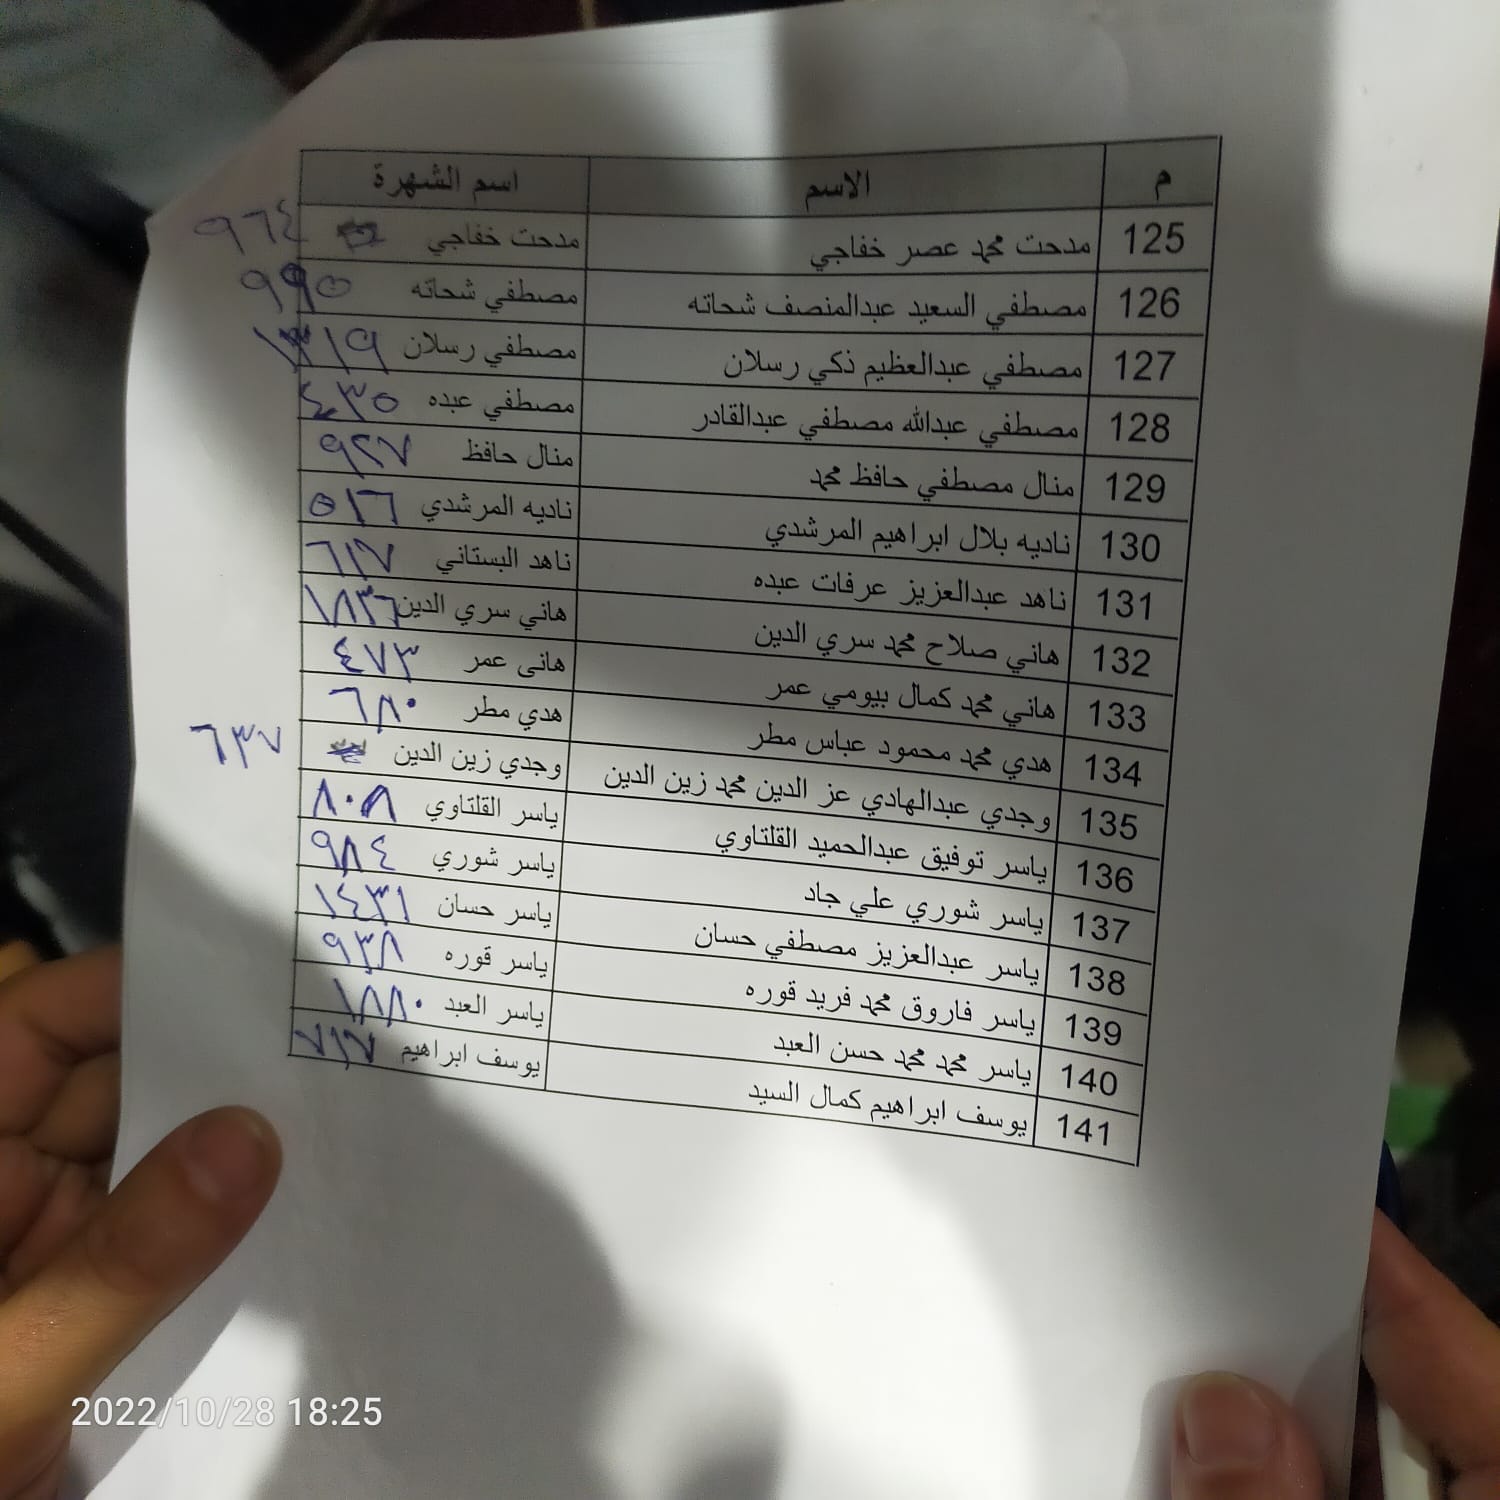 م الاسم اسم الشهرة
125 مدحت محمد عصر خفاجي مدحت خفاجي ٩٦٤
126 مصطفي السعيد عبدالمنصف شحاته مصطفي شحاته ٩٩٥
127 مصطفي عبدالعظيم ذكي رسلان مصطفي رسلان ١٣١٩
128 مصطفي عبدالله مصطفي عبدالقادر مصطفي عبده ٤٣٥
129 منال مصطفي حافظ محمد منال حافظ ٩٢٧
130 ناديه بلال ابراهيم المرشدي ناديه المرشدي ٥١٦
131 ناهد عبدالعزيز عرفات عبده ناهد البستاني ٦١٧
132 هاني صلاح محمد سري الدين هاني سري الدين ١٨٣٦
133 هاني محمد كمال بيومي عمر هانى عمر ٤٧٣
134 هدي محمد محمود عباس مطر هدي مطر ٦٨٠
135 وجدي عبدالهادي عز الدين محمد زين الدين وجدي زين الدين ٦٣٧
136 ياسر توفيق عبدالحميد القلتاوي ياسر القلتاوي ٨٠٨
137 ياسر شوري علي جاد ياسر شوري ٩٨٤
138 ياسر عبدالعزيز مصطفي حسان ياسر حسان ١٤٣١
139 ياسر فاروق محمد فريد قوره ياسر قوره ٩٣٨
140 ياسر محمد محمد حسن العبد ياسر العبد ١٨٨٠
141 يوسف ابراهيم كمال السيد يوسف ابراهيم ٧١٧
2022/10/28 18:25